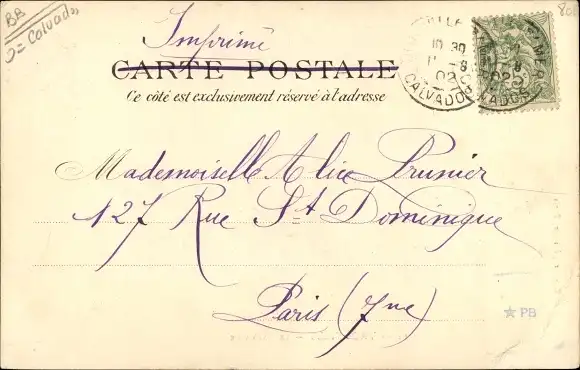 BB
Calvados
80
Imprimé
CARTE POSTALE
Ce côté est exclusivement réservé à l'adresse
10 30
11 -8
02
CALVADOS
Mademoiselle Alice Prunier
127 Rue St Dominique
Paris (7me)
PB